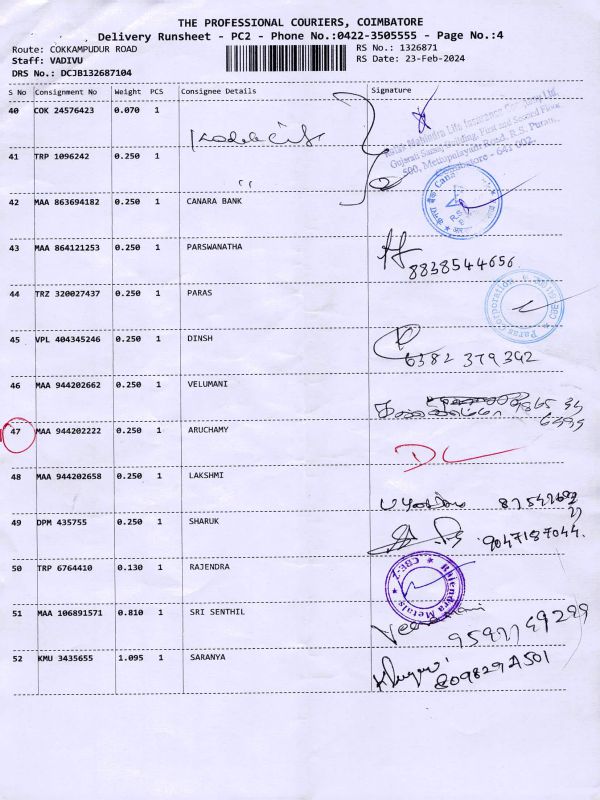 THE PROFESSIONAL COURIERS, COIMBATORE
Delivery Runsheet - PC2 - Phone No.:0422-3505555 - Page No.:4
Route: COKKAMPUDUR ROAD RS No.: 1326871
Staff: VADIVU RS Date: 23-Feb-2024
DRS No.: DCJB132687104
S No Consignment No Weight PCS Consignee Details Signature
40 COK 24576423 0.070 1
Kotak Mahindra Life Insurance Company Ltd.
Gujarati Samaj Building, First and Second Floor
500, Mettupalayam Road, R.S. Puram,
Coimbatore - 641 002.
41 TRP 1096242 0.250 1 "
42 MAA 863694182 0.250 1 CANARA BANK
43 MAA 864121253 0.250 1 PARSWANATHA
8838544656
44 TRZ 320027437 0.250 1 PARAS
Paras Corporation
45 VPL 404345246 0.250 1 DINSH
6382 379392
46 MAA 944202662 0.250 1 VELUMANI
47 MAA 944202222 0.250 1 ARUCHAMY
DL
48 MAA 944202658 0.250 1 LAKSHMI
49 DPM 435755 0.250 1 SHARUK
9047187044.
50 TRP 6764410 0.130 1 RAJENDRA
Rajendra Metals CBE-2
51 MAA 106891571 0.810 1 SRI SENTHIL
52 KMU 3435655 1.095 1 SARANYA